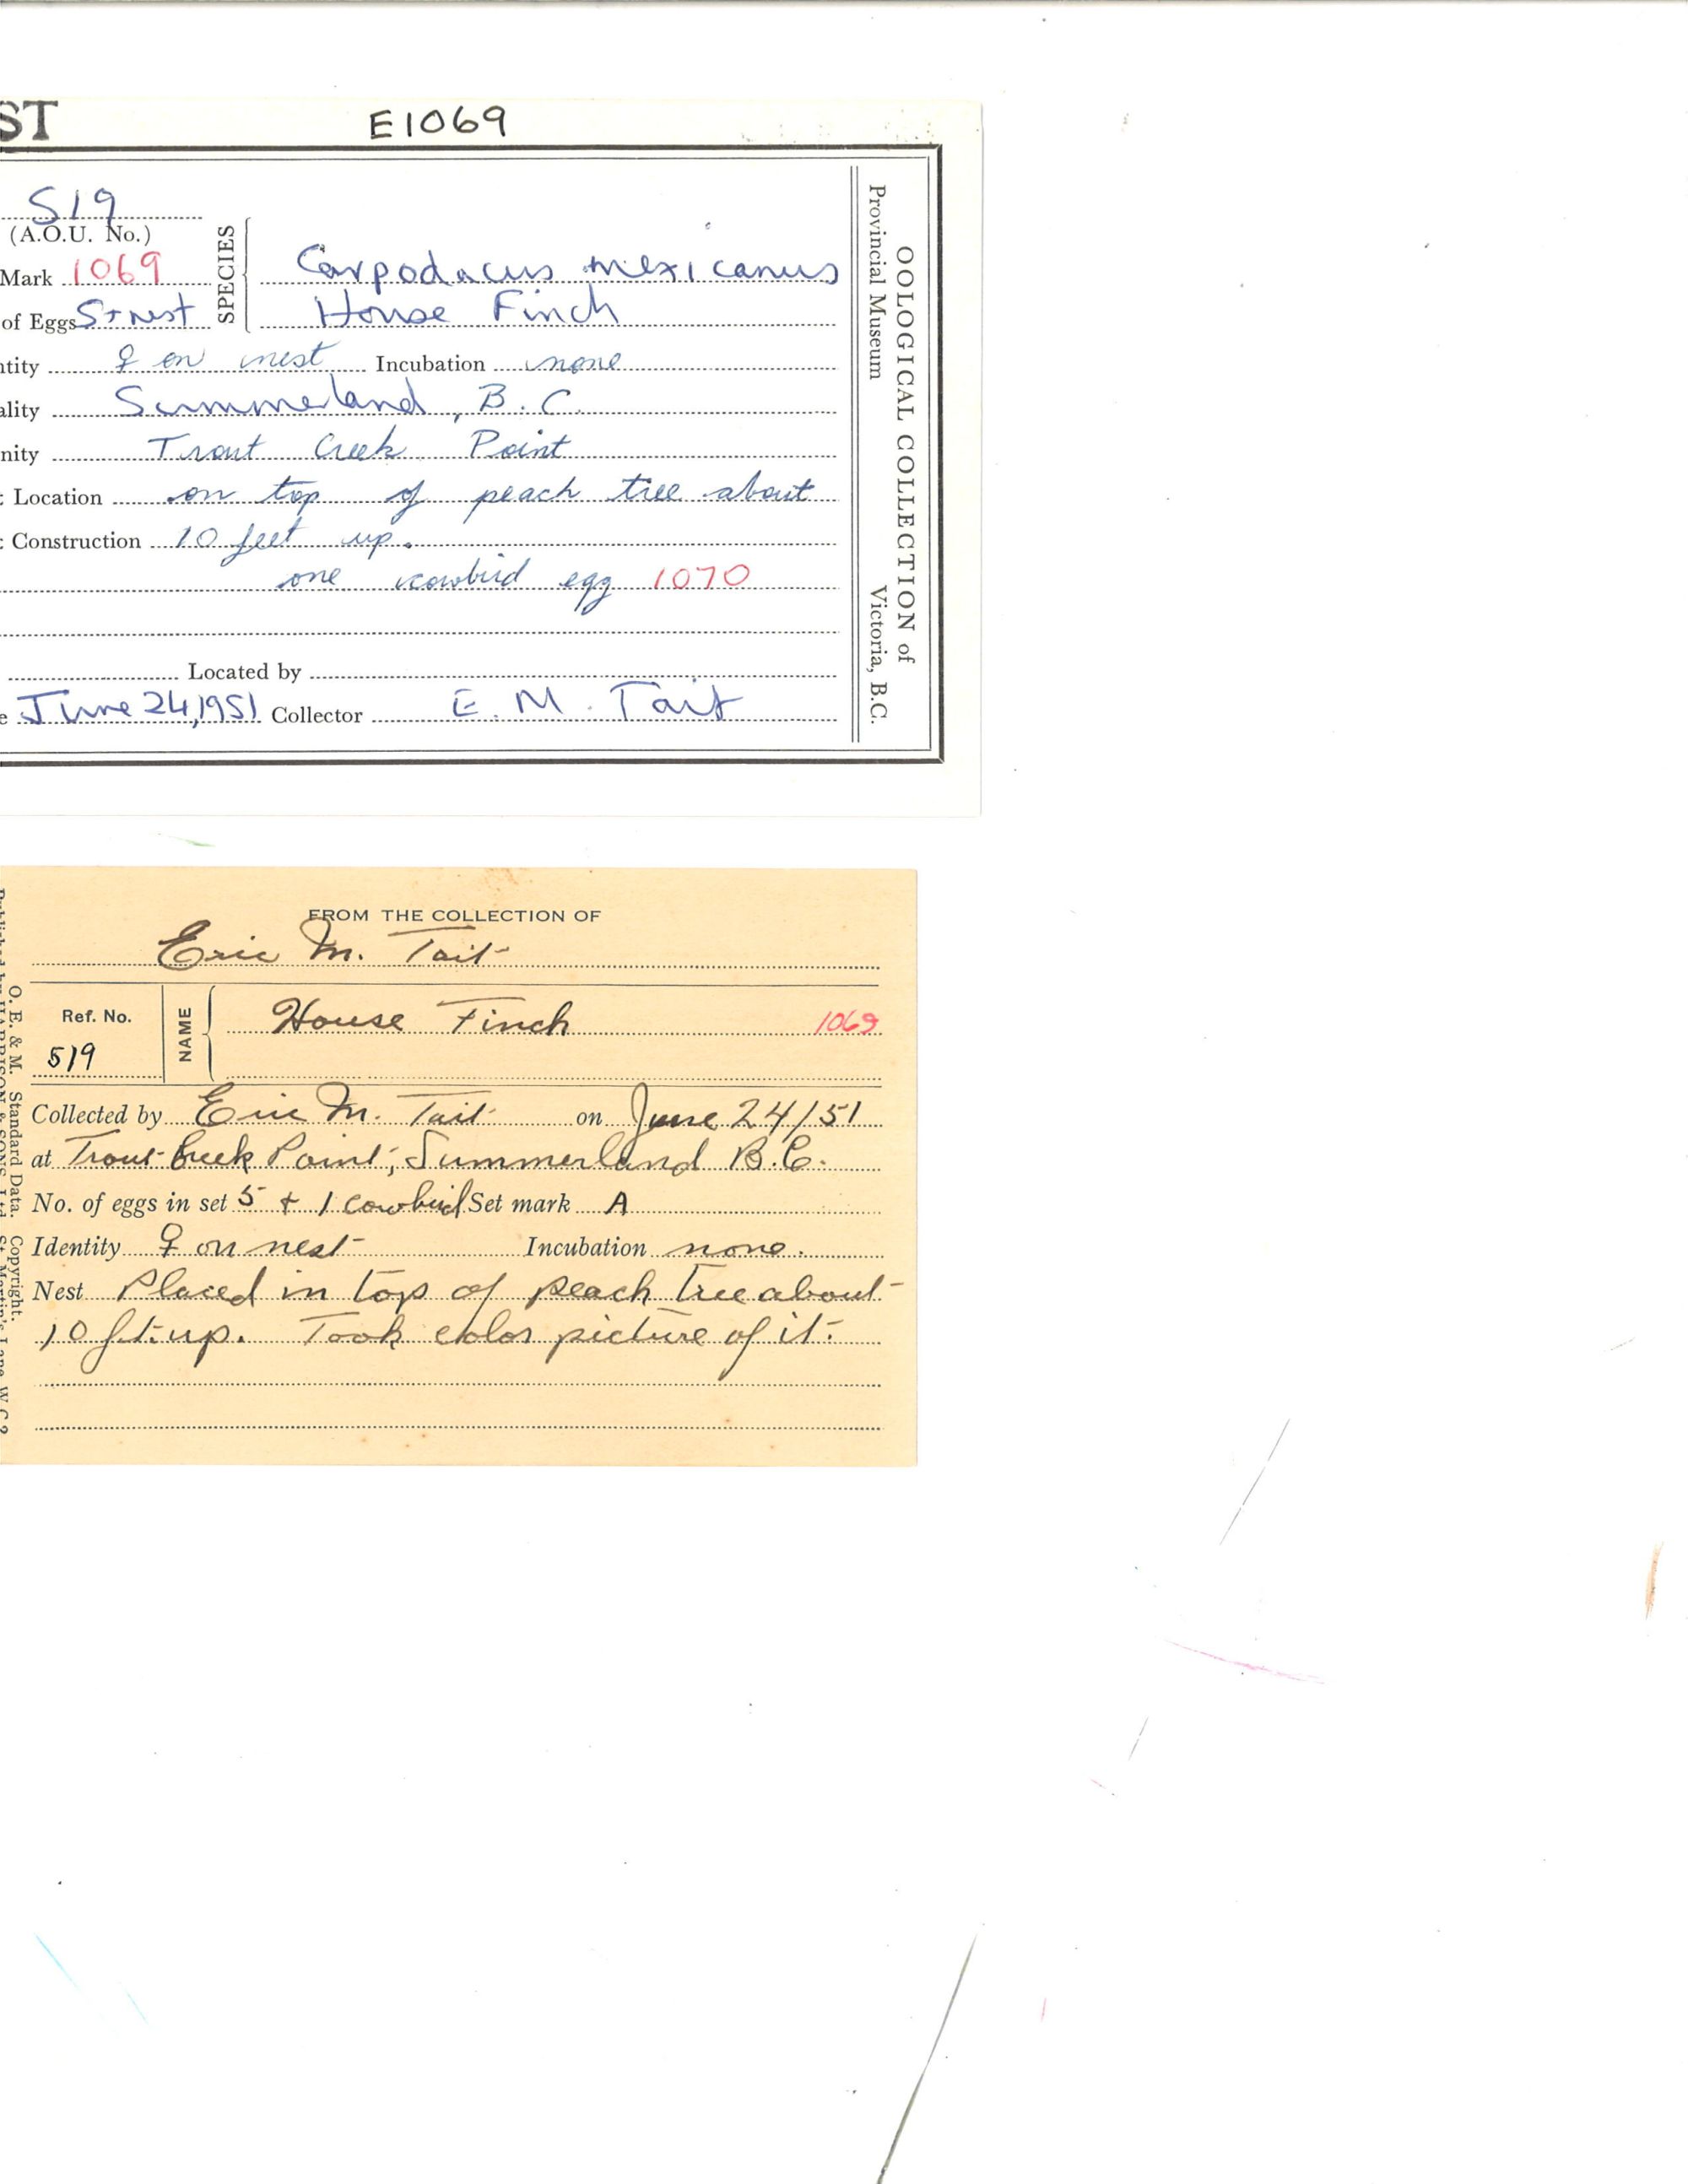 ST E1069
519
(A.O.U. No.)
Mark 1069
of Eggs 5+nest
SPECIES
Carpodacus mexicanus
House Finch
tity ♀ on nest Incubation none
ality Summerland, B.C.
nity Trout Creek Point
: Location on top of peach tree about
: Construction 10 feet up.
one cowbird egg 1070
Located by
e June 24, 1951 Collector E. M. Tait
OOLOGICAL COLLECTION of
Provincial Museum Victoria, B.C.
FROM THE COLLECTION OF
Eric M. Tait
Ref. No.
519
NAME
House Finch 1069
Collected by Eric M. Tait on June 24/51
at Trout Creek Point, Summerland B.C.
No. of eggs in set 5 + 1 cowbird Set mark A
Identity ♀ on nest Incubation none.
Nest Placed in top of peach tree about
10 ft. up. Took color picture of it.
O. E. & M. Standard Data. Copyright.